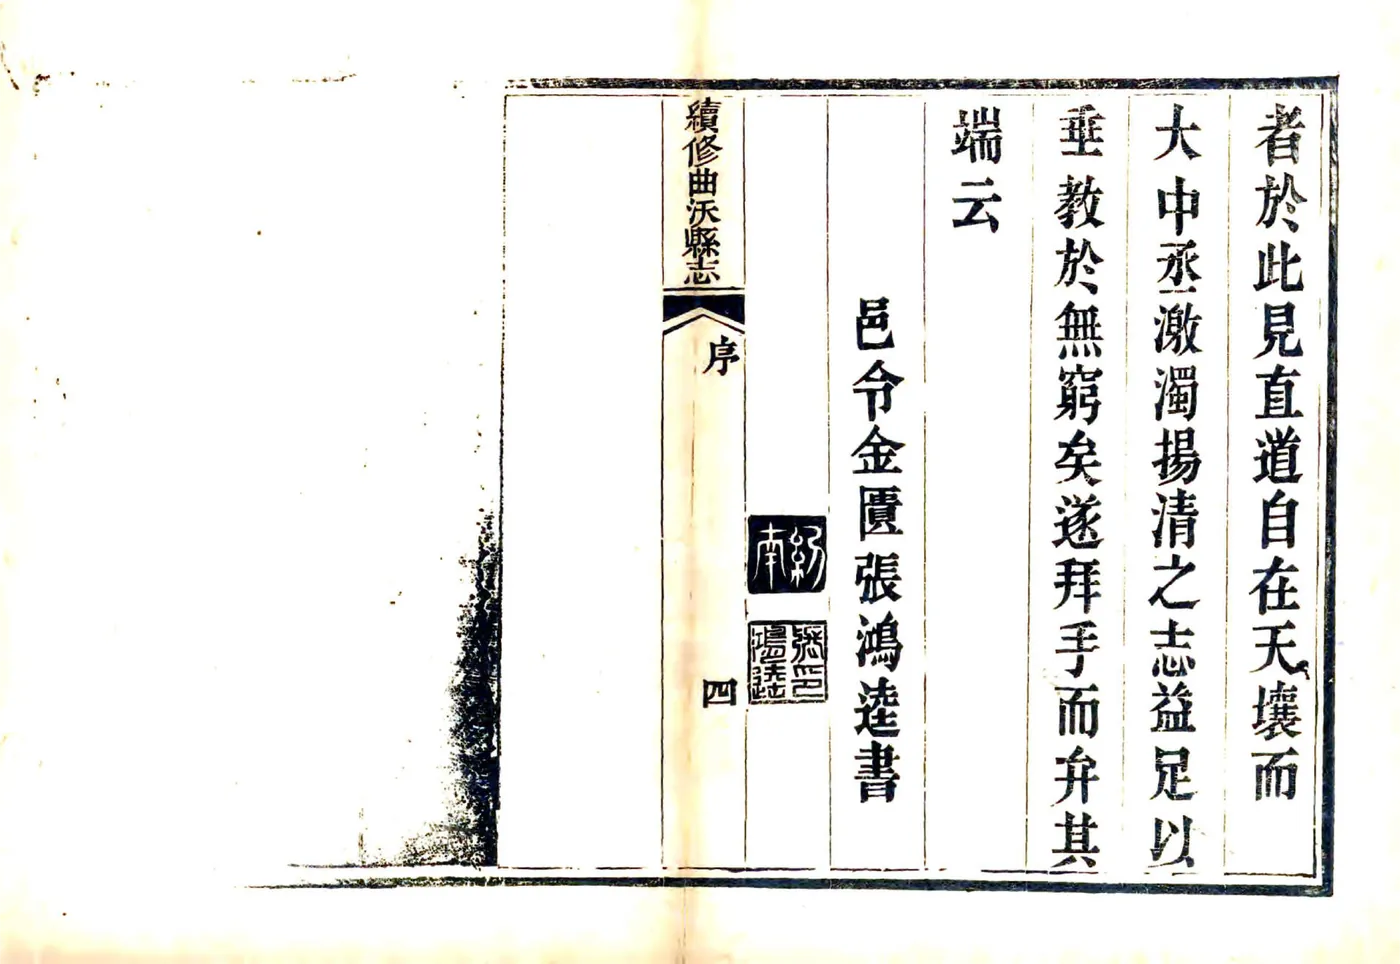 者於此見直道自在天壤而
大中丞激濁揚清之志益足以
垂教於無窮矣遂拜手而弁其
端云
邑令金匱張鴻逵書
紉南
張印鴻逵
續修曲沃縣志
序
四